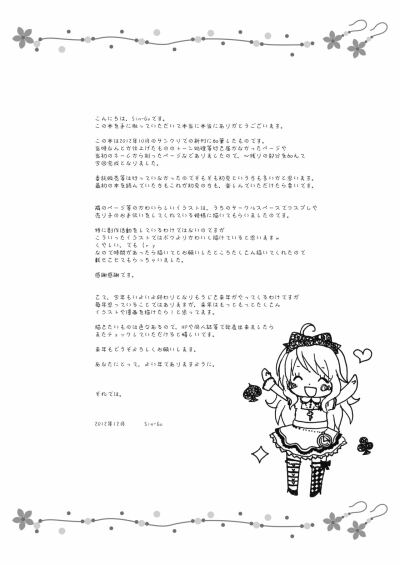 こんにちは、Sin-Guです。
この本を手に取っていただいて本当に本当にありがとうございます。
この本は2012年10月のサンクリでの新刊に加筆したものです。
当時なんとか仕上げたもののトーン処理等が間に合わなかったページや
当初のネームから削ったページなどありましたので、
今回完成となりました。
委託販売等は行っていなかったのでそもそも初見という方も多いかと思います。
最初の本を読んでいた方もこれが初見の方も、楽しんでいただけたら幸いです。
隣のページ等のかわいらしいイラストは、うちのサークルスペースでコスプレや
売り子のお手伝いをしてくれている娘様に描いてもらいましたのです。
特に創作活動をしているわけではないのですが
こういったイラストではボクよりかわいく描けていると思いますw
くやしい、でも
なので時間があったら描いてとお願いしたところたくさん描いてくれたので
載せことてもらっちゃいました。
感謝感謝です。
さて、今年もいよいよ終わりとなりもうじき来年がやってくるわけですが
毎年思っていることではありますが、来年はもっともっとたくさん
イラストや漫画を描けたら、と思ってます。
描きたいものは色々あるので、HPや同人誌等で発表出来ましたら
またチェックしていただけると嬉しいです。
来年もどうぞよろしくお願いします。
あなたにとって、よい年でありますように。
それでは。
2012年12月 Sin-Gu